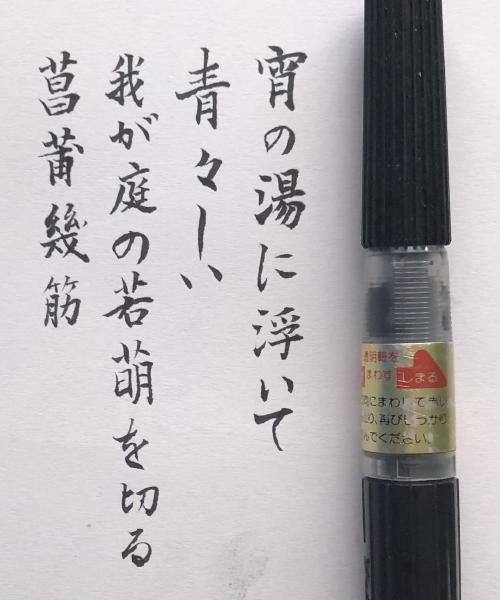 宵の湯に浮いて
青々しい
我が庭の若萌を切る
菖蒲幾筋
透明軸を
まわす しまる
にまわして
り、再びしっかり
んでください。